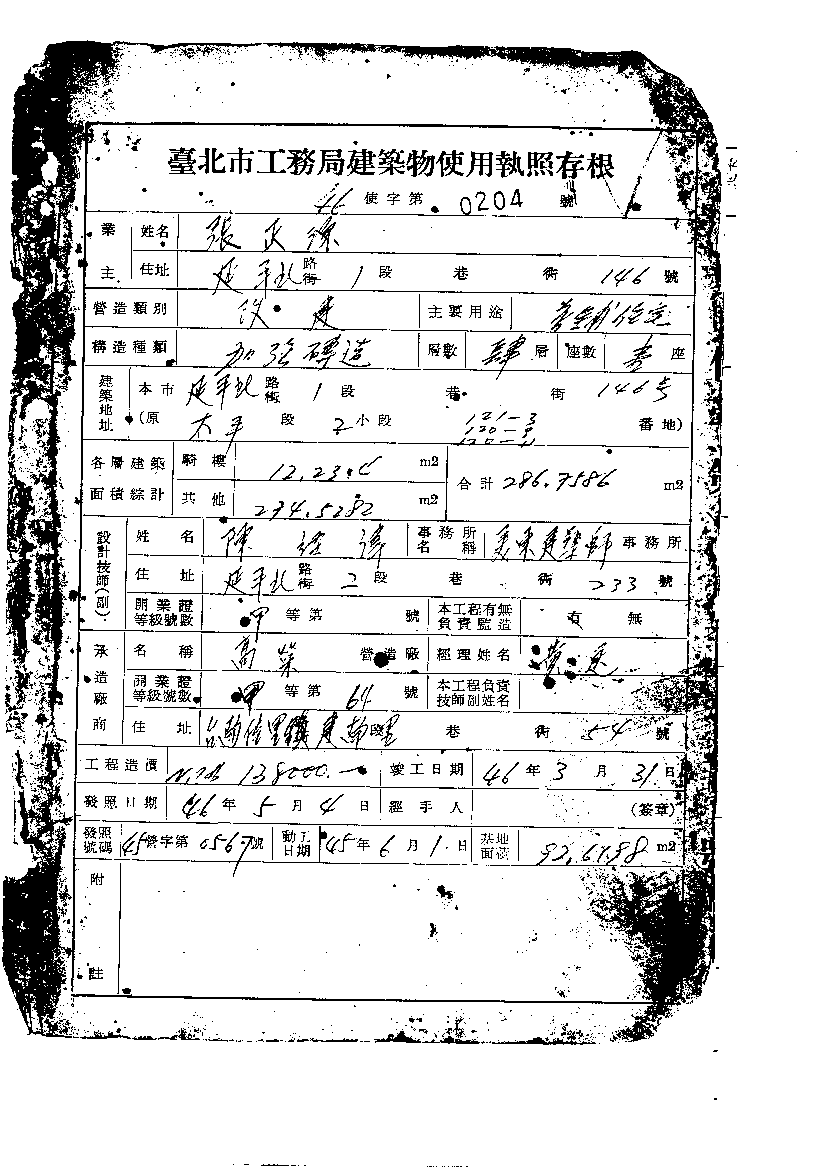 臺北市工務局建築物使用執照存根
46 使字第 0204 號
業主 姓名 張正
住址 延平北 路街 1 段 巷 街 146 號
營造類別 改建 主要用途 店舖住宅
構造種類 加強磚造 層數 肆 層 座數 壹 座
建築地址 本市 延平北 路街 1 段 巷 街 146号
(原 太平 段 2 小段 121-3 番地)
各層建築面積綜計 騎樓 m2 合計 286.7586 m2
其他 274.5282 m2
設計技師(副) 姓名 陳 事務所名稱 建築師 事務所
住址 延平北 路街 二 段 巷 街 233 號
開業證等級號數 甲 等第 號 本工程有無負責監造 有 無
承造廠商 名稱 高 營造廠 經理姓名 黃
開業證等級號數 甲 等第 64 號 本工程負責技師副姓名
住址 台南佳里鎮建南里 巷 街 54 號
工程造價 138000.- 竣工日期 46 年 3 月 31 日
發照日期 46 年 5 月 4 日 經手人 (簽章)
發照號碼 45 營字第 0567 號 動工日期 45 年 6 月 1 日 基地面積 m2
附註